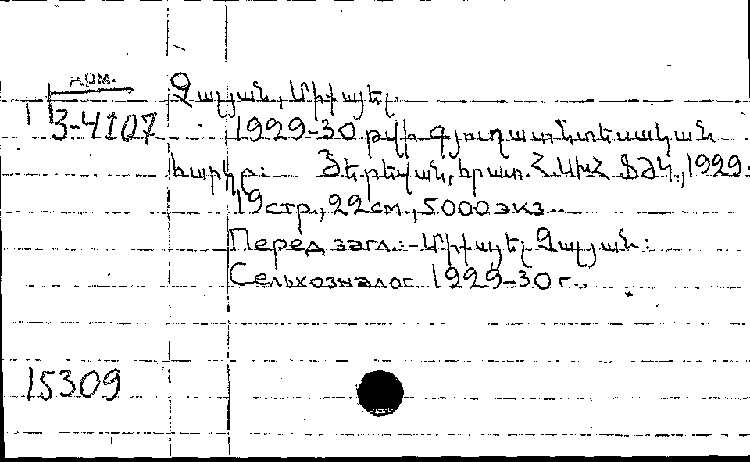 дом.
I 3-4107
Չալյան, Միքայել.
1929-30 թվի գյուղատնտեսական
հարկը: Յերեվան, հրատ. Հ.ՍԽՀ ՖԺԿ., 1929.
19 стр., 22 см., 5000 экз.
Перед загл.: Միքայել Չալյան:
Сельхозналог 1929-30 г.
15309